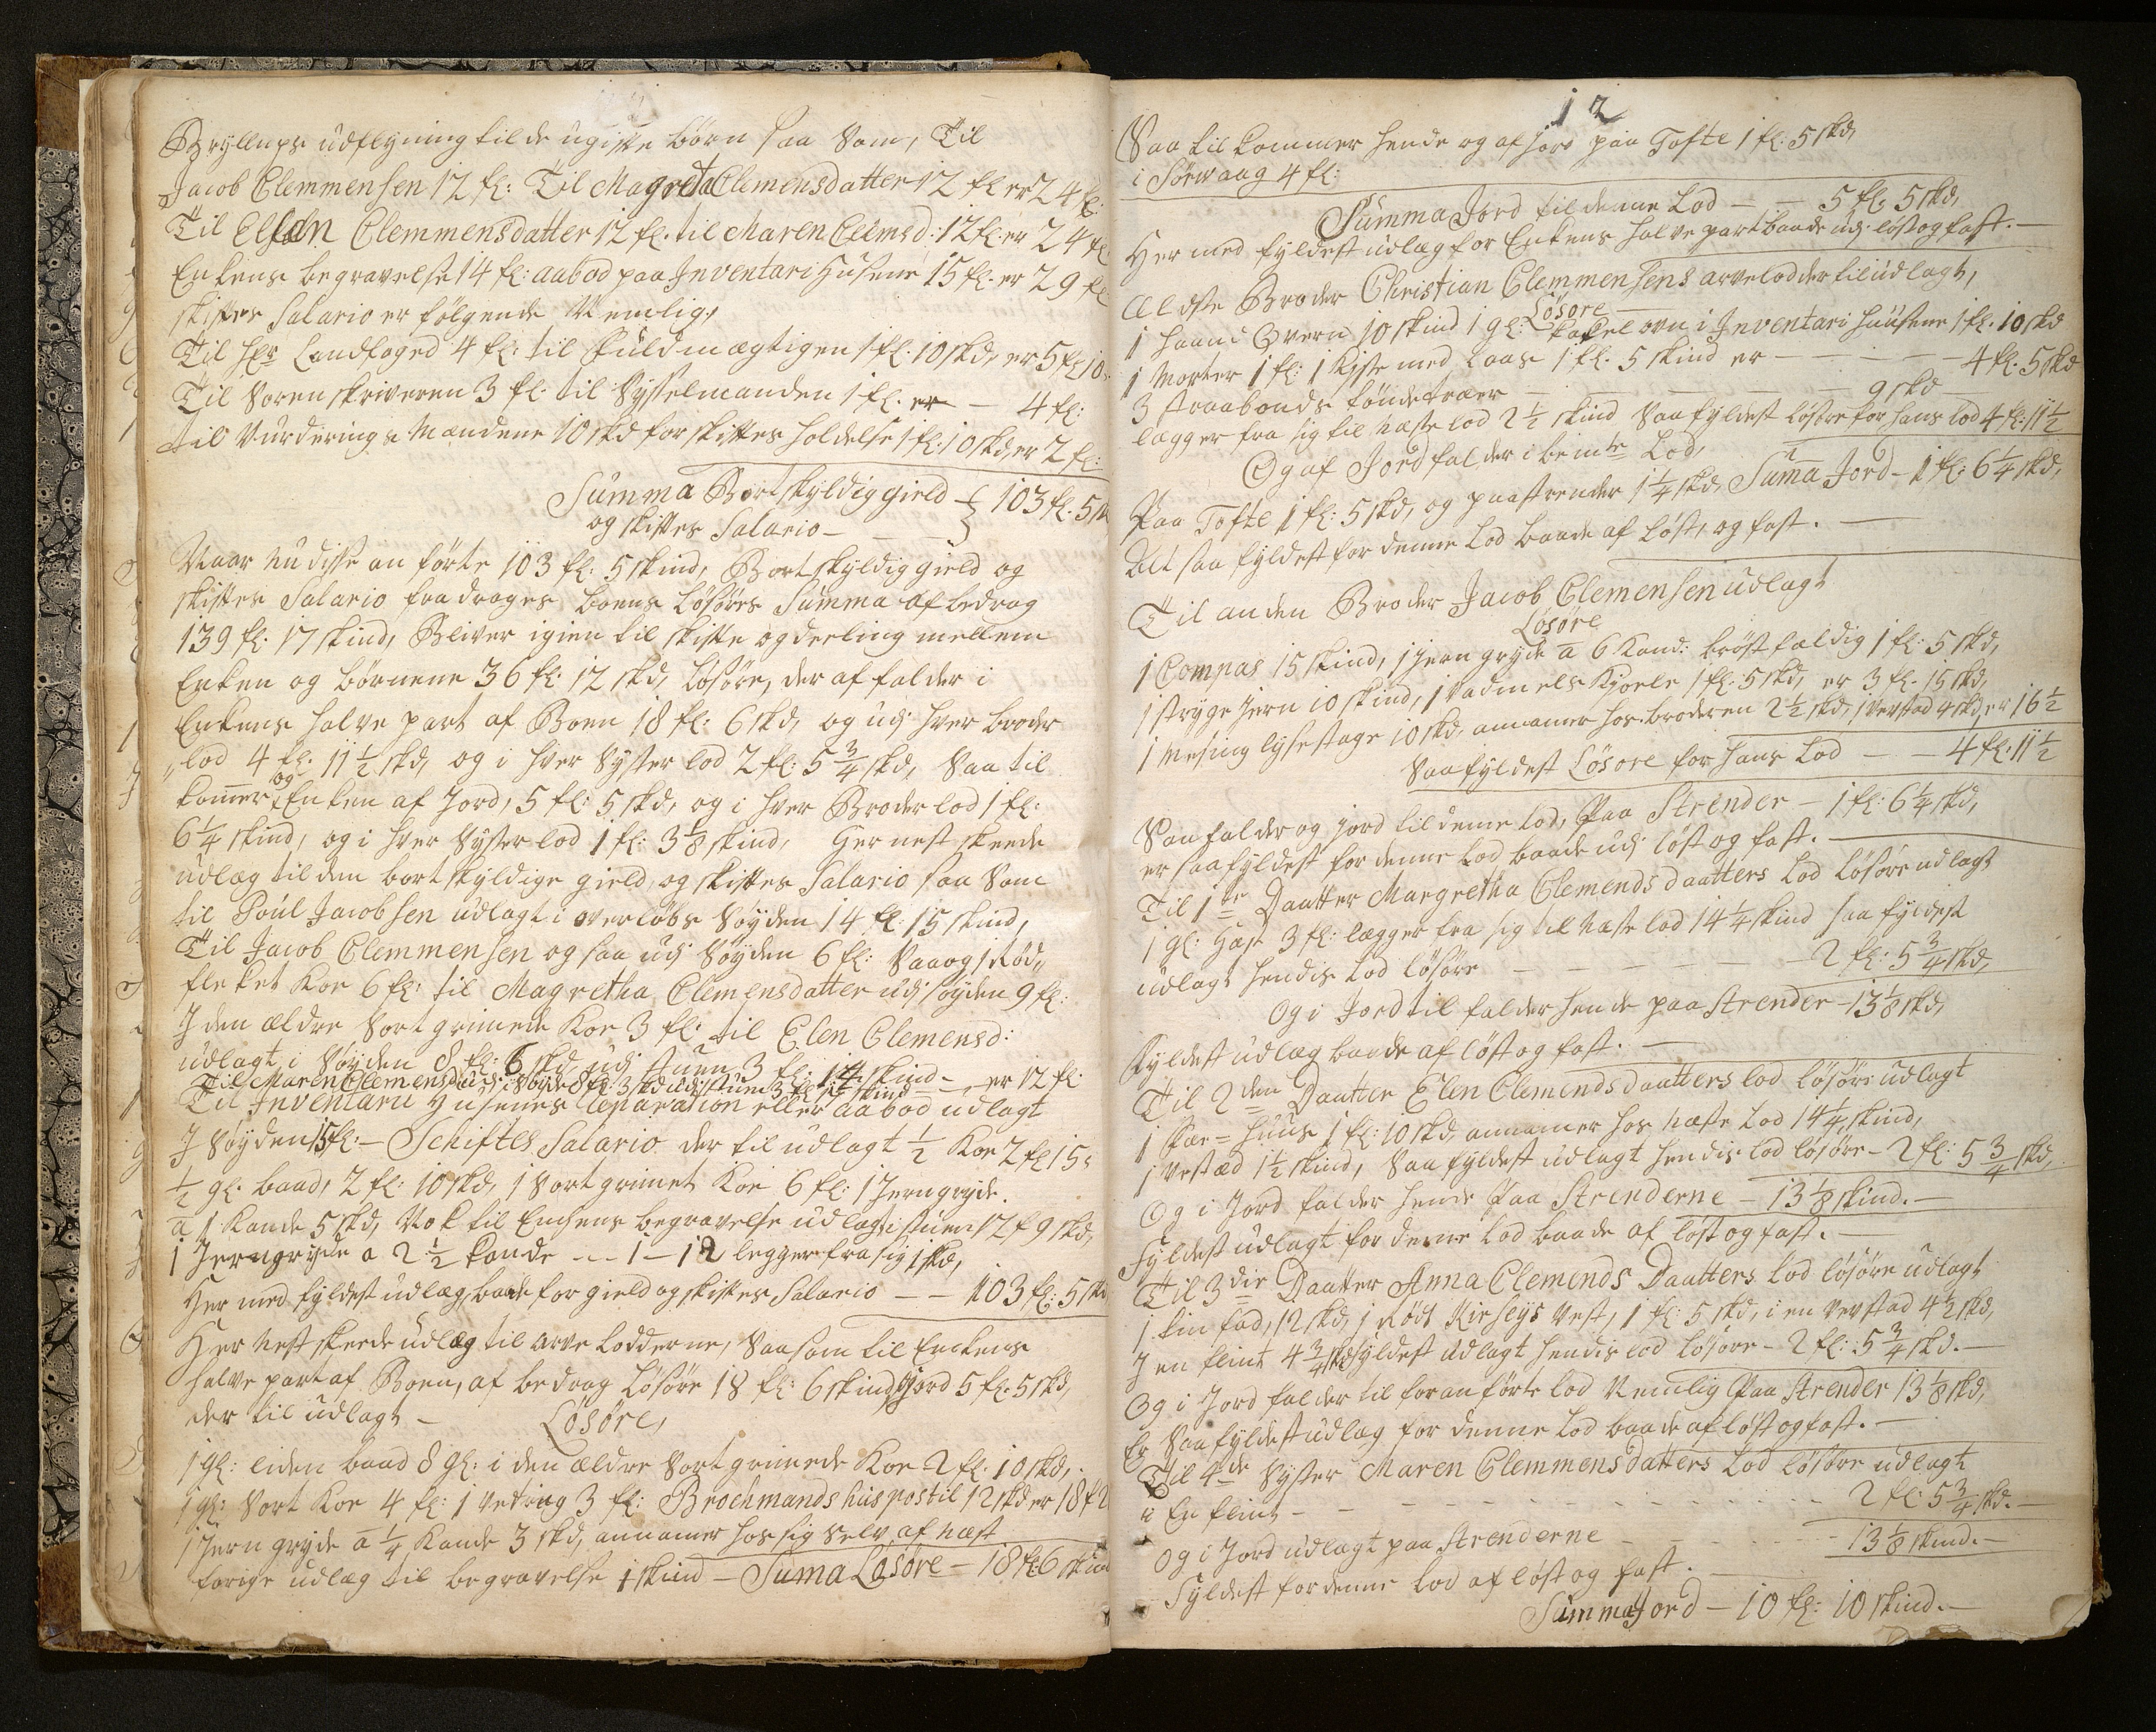 Bryllups udstyning til de ugifte börn saa som, Til
Jacob Clemmensen 12 fl: Til Magreta Clemensdatter 12 fl er 24 fl:
Til Ellen Clemmensdatter 12 fl. til Maren Clemsd: 12 fl. er 24 fl.
Enkens begravelse 14 fl: aabod paa Inventari Husene 15 fl. er 29 fl
skiftes Salario er følgende Nemlig,
Til Hr Landfoged 4 fl: til Fuldmægtigen 1 fl. 10 skd, er 5 fl 10
Til Sorenskriveren 3 fl. til Sysselmanden 1 fl. er — 4 fl:
til Vurderings Mændene 10 skd for skiftes holdelse 1 fl: 10 skd, er 2 fl:
Summa Bortskyldig gield } 103 fl. 5 sk
og skiftes Salario —
Naar nu disse anførte 103 fl: 5 skind, Bortskyldig gield og
skiftes Salario fradrages boens løsøres Summa afbedrag
139 fl: 17 skind, Bliver igien til skifte og deeling mellem
Enken og børnene 36 fl: 12 skd, løsøre, der af falder i
Enkens halve part af Boen 18 fl: 6 skd, og udj hver broder
lod 4 fl: 11 1/2 skd, og i hver Syster lod 2 fl: 5 3/4 skd, Saa til
kommer og Enken af Jord, 5 fl: 5 skd, og i hver Broder lod 1 fl:
6 1/4 skind, og i hver Syster lod 1 fl: 3 1/8 skind, Her nest skeede
udlæg til den bortskyldige gield, og skiftes Salario saa som
til Poul Jacobsen udlagt i overløbs Søyden 14 fl: 15 skind,
Til Jacob Clemmensen og saa udj Søyden 6 fl: Saa og 1 Rød,,
fleket Koe 6 fl: til Magretha Clemensdatter udj søyden 9 fl:
J den ældre Sortgrimede Koe 3 fl: til Elen Clemensd:
udlagt i Søyden 8 fl: 6 skd udj stuen 3 fl: 14 skind — er 12 fl:
Til Maren Clemensd: udj Søyde 8 fl: 3 skd udj stuen 3 fl 17 skind
Til Inventarii Husenes Reparation eller aabod udlagt
J Søyden 15 fl: — Schiftes Salario der til udlagt 1/2 Koe 2 fl 15 s
1/2 gl. baad, 2 fl: 10 skd, 1 Sortgrimet Koe 6 fl: 1 Jerngryde.
a 1 Kande 5 skd, Nok til Enchens begravelse udlagt i stuen 12 f 9 skd,
1 Jerngryde a 2 1/2 kande — 1 — 12 legger fra sig 1 skd,
Her med fyldest udlæg baade for gield og skiftes Salario — — 103 fl: 5 skd
Her Nest skeede udlæg til arve lodderne, Saasom til Enckens
halve part af Boen, af bedrag Løsøre 18 fl: 6 skind, Jord 5 fl: 5 skd,
der til udlagt — Løsøre,
1 gl: liden baad 8 gl: i den ældre Sortgrimede Koe 2 fl: 10 skd,
1 gl: Sort Koe 4 fl: 1 Vetring 3 fl: Brochmands huspostil 12 skd er 18 f 2
1 Jerngryde a 1/4 Kande 3 skd, annamer hos sig selv af nest
forige udlæg til begravelse 1 skind — Suma Løsøre — 18 fl: 6 skind
12
Saa til kommer hende og af jord paa Tofte 1 fl: 5 skd,
i Sörwaag 4 fl:
Summa Jord til denne Lod — — 5 fl: 5 skd,
Her med fyldest udlæg for Enkens halve part baade udj løst og fast. —
Ældste Broder Christian Clemmensens arvelod der til udlagt,
Løsøre
1 haand Qvern 10 skind 1 gl: kakelovn i Inventari huusene 1 fl. 10 skd
1 Morter 1 fl: 1 Kiste med Laas 1 fl. 5 skind er — — — — 4 fl: 5 skd
3 straabonds töndetræer — — — — 9 skd
legger fra sig til næste lod 2 1/2 skind Saa fyldest løsøre for hans lod 4 fl: 11 1/2
Og af Jord falder i bemte Lod,
Paa Tofte 1 fl: 5 skd, og paa strender 1 1/4 skd, Suma Jord — 1 fl: 6 1/4 skd,
Alt saa fyldest for denne Lod baade af løst, og fast. —
Til anden Broder Jacob Clemensen udlagt
Løsøre
1 Compas 15 skind, 1 Jerngryde a 6 Kand: brøstfeldig 1 fl: 5 skd,
1 stryge Jern 10 skind, 1 Vadmels Kjole 1 fl: 5 skd, er 3 fl: 15 skd,
1 Mesing lysestage 10 skd, annamer hos broderen 2 1/2 skd, 1 Vevstad 4 skd, er 16 1/2
Saa fyldest Løsøre for hans Lod — — 4 fl: 11 1/2
Saa falder og jord til denne Lod, Paa Strender — 1 fl: 6 1/4 skd,
er saa fyldest for denne Lod baade udj løst og fast. —
Til 1te Daatter Margretha Clemends daatters Lod løsøre udlagt
1 gl: Hest 3 fl: legger fra sig til næste lod 14 1/4 skind saa fyldest
udlagt hendis Lod løsøre — — — — 2 fl: 5 3/4 skd,
Og i Jord til falder hende paa Strender — 13 1/8 skd,
Fyldest udlæg baade af løst og fast. —
Til 2den Daatter Elen Clemends daatters lod løsøre udlagt
1 Faar-huus 1 fl: 10 skd, annamer hos næste Lod 14 1/4 skind,
1 Vestad 1 1/2 skind, Saa fyldest udlagt hendis lod løsøre — 2 fl: 5 3/4 skd,
Og i Jord falder hende paa Strenderne — 13 1/8 skind. —
Fyldest udlagt for denne Lod baade af løst og fast. —
Til 3die Daatter Anna Clemends Daatters Lod løsøre udlagt
1 tin fad, 12 skd, 1 Rødt Kirseys Vest, 1 fl: 5 skd, i en Vevstad 4 1/2 skd,
J en flint 4 3/4 skd fyldest udlagt hendis lod løsøre — 2 fl: 5 3/4 skd. —
Og i Jord falder til foranførte lod Nemlig Paa Strender 13 1/8 skd,
Er Saa fyldest udlæg for denne Lod baade af løst og fast. —
Til 4de Syster Maren Clemmensdatters Lod løsøre udlagt
i En flint — — — — 2 fl: 5 3/4 skd. —
Og i Jord udlagt paa Strenderne — — 13 1/8 skind. —
Fyldest for denne Lod af løst og fast. —
Summa Jord — 10 fl: 10 skind. —